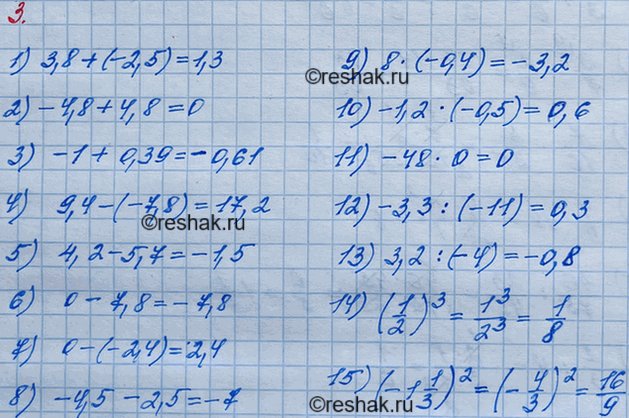 3.
1) 3,8 + (-2,5) = 1,3
2) -4,8 + 4,8 = 0
3) -1 + 0,39 = -0,61
4) 9,4 - (-7,8) = 17,2
5) 4,2 - 5,7 = -1,5
6) 0 - 7,8 = -7,8
7) 0 - (-2,4) = 2,4
8) -4,5 - 2,5 = -7
9) 8 · (-0,4) = -3,2
10) -1,2 · (-0,5) = 0,6
11) -48 · 0 = 0
12) -3,3 : (-11) = 0,3
13) 3,2 : (-4) = -0,8
14) (1/2)^3 = 1^3/2^3 = 1/8
15) (-1 1/3)^2 = (-4/3)^2 = 16/9
©reshak.ru
©reshak.ru
©reshak.ru